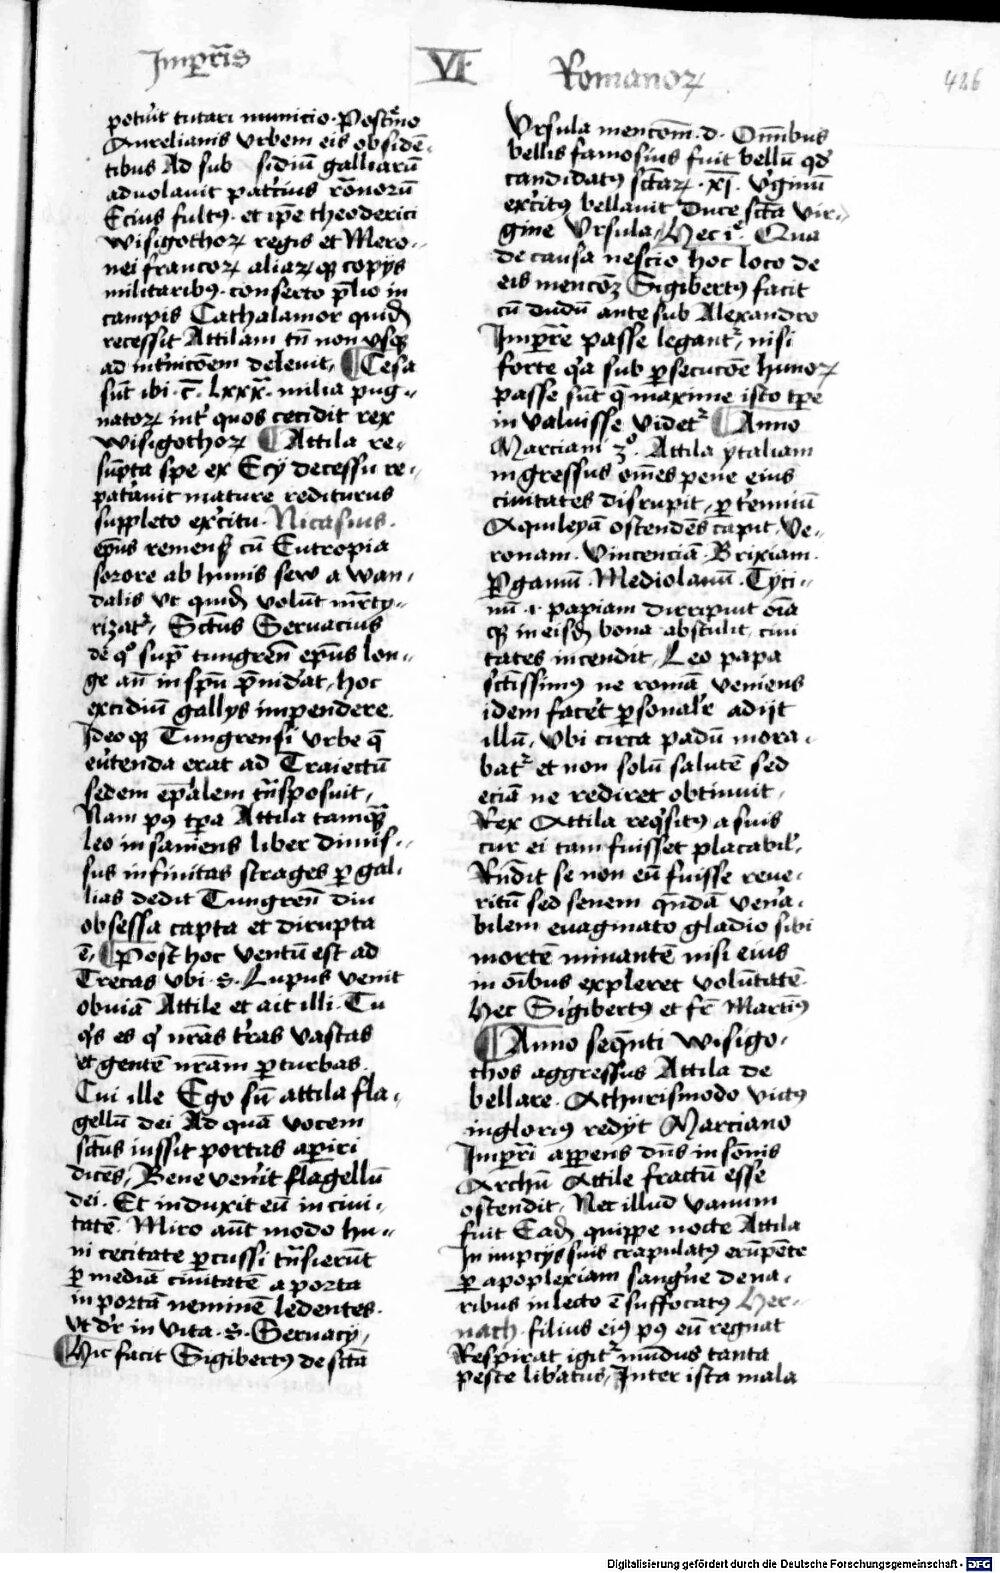 Impr̄is VI Romanoꝝ 426
potuit tutari municio. Postr̄mo
Aurelianis Vrbem eis obsidē-
tibus Ad sub sidiū galliarū
aduolauit patricius rōnorū
Ecius fultꝰ. et ip̄e theoderici
wisigothoꝝ regis et Mero-
nei francoꝝ aliaꝝ qꝫ copijs
militaribꝰ. conserto p̄lio in
campis Cathalamor quidē
recessit Attilam tn̄ non vsqꝫ
ad int'nicōem deleuit, ¶ Cesa
sūt ibi. c̄. lxxx. milia pug-
natoꝝ int' quos cecidit rex
wisigothoꝝ ¶ Attila re-
sūpta spe ex Ecij decessu re-
patriauit mature rediturus
suppleto ex'citu. Nicasius.
ep̄us remensꝭ cū Eutropia
sorore ab hunis sew a wan-
dalis vt quidē volūt mr̄ty-
rizatr̄, Sctūs Seruacius
de qo supra tungren̄ ep̄us lon-
ge an̄ in sp̄u p̄uiderat, hoc
excidiū gallijs impendere.
Ideo qꝫ Tungrensi vrbe q̄
eu'tenda erat ad Traiectū
sedem ep̄alem trāsposuit,
Nam pꝰ tp̄a Attila tamqꝫ
leo in saniens liber dimis-
sus infinitas strages p gal-
lias dedit Tungren̄ diu
obsessa capta et dirupta
ē, ¶ Post hoc ventū est ad
Trecas vbi. s. Lupus venit
obuiā Attile et ait illi. Tu
qs es q nrās t'ras vastas
et gentē nrām p̱turbas.
Cui ille Ego sū attila fla-
gellū dei Ad quā vocem
sctūs iussit portas ap̱iri
dicēs, Bene venit flagellū
dei. Et induxit eū in ciui-
tatē. Miro aūt modo hu-
ni cecitate p̱cussi trāsierūt
p̱ mediā ciuitatē a porta
in portā neminē ledentes.
vt dr̄ in vita. s. Seruacij,
¶ Hic facit Sigibertꝰ de sctā
Vrsula mencom̄. d. Om̄ibus
bellis famosius fuit bellū qd̄
candidatꝰ sctāꝝ. xi. v'ginū
ex'citꝰ bellauit Duce sctā vir-
gine Vrsula, Hec i'. Qua
de causa nescio hoc loco de
eis mencoꝫ Sigibertꝰ facit
cū dudū ante sub Alexandro
Imp̱r̄e passe legantr̄, nisi
forte qa sub p̱secucōe hunoꝝ
passe sūt q̄ maxime isto tp̄e
in valuisse videtr̄ ¶ Anno
Marciani 3o. Attila ytaliam
in gressus om̄es pene eius
ciuitates disrupit, p̱ t'miniū
Aquileyā ostendēs caput. Ve-
ronam. Vincenciā. Brixiam.
P̱gamū. Mediolanū. Tyci-
nū .i. papiam dirripuit oīa
qꝫ in eisdē bona abstulit, ciui
tates incendit, Leo papa
sctissimꝰ ne romā veniens
idem fac'et p̱sonalr̄ adijt
illū, Vbi circa padū mora-
batr̄ et non solū salutē sed
eciā ne rediret obtinuit,
Rex Attila reqsitꝰ a suis
cur ei tam fuisset placabil',
Rn̄dit se non eū fuisse reue-
ritū sed senem qn̄dā ven'a-
bilem euaginato gladio sibi
mortē minantē nisi eius
in oībus expleret volūtatē.
Hec Sigibertꝰ et fr̄ Martinꝰ
¶ Anno seq̄nti wisigo-
thos aggressus Attila de
bellare. Athurismodo victꝰ
ingloriꝰ redijt Marciano
Imp̱r̄i app̱ens dn̄s in sōnis
Archū Attile fractū esse
ostendit, Nec illud vanum
fuit Eadē quippe nocte Attila
In nupcijs suis crapulatꝰ erūpēte
p̱ apoplexiam sang'ne de na-
ribus in lecto ē suffocatꝰ Her-
nach. filius eiꝰ pꝰ eū regnat
Respirat igitr̄ mūdus tanta
peste lib'atus, Inter ista mala
Digitalisierung gefördert durch die Deutsche Forschungsgemeinschaft - DFG